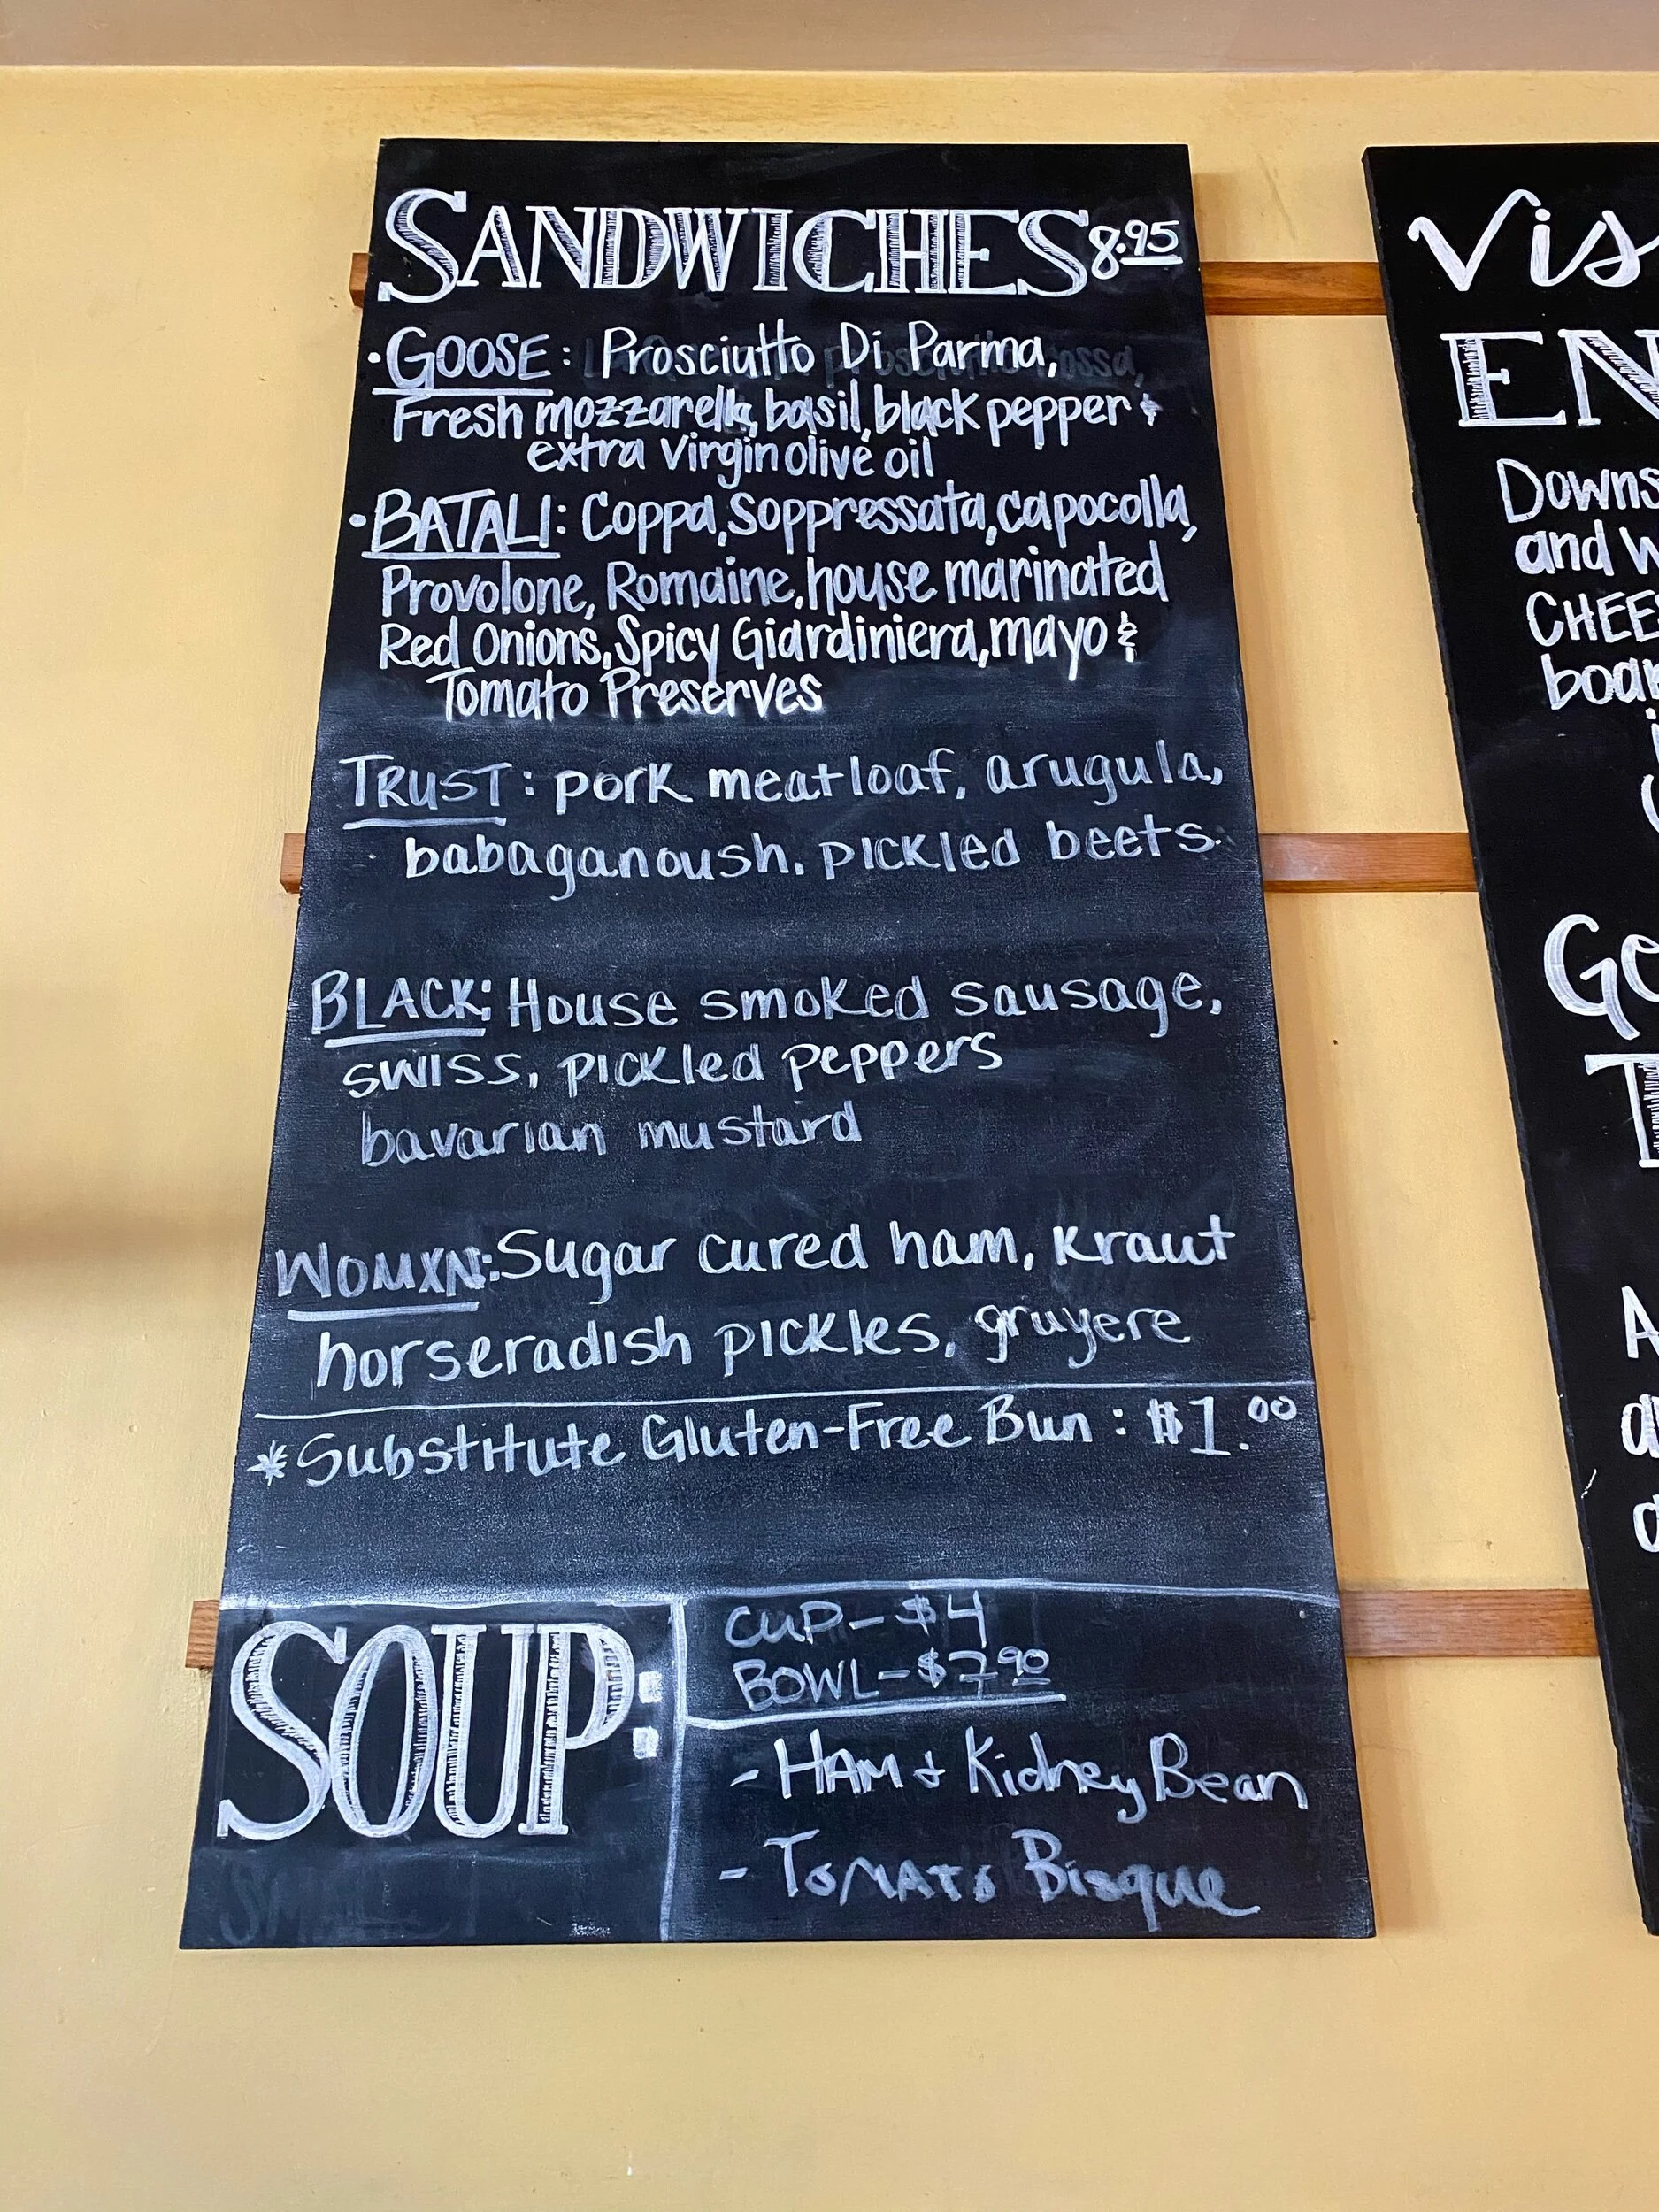 SANDWICHES 8.95
• GOOSE: Prosciutto Di Parma,
Fresh mozzarella, basil, black pepper &
extra virgin olive oil
• BATALI: Coppa, Soppressata, capocolla,
Provolone, Romaine, house marinated
Red Onions, Spicy Giardiniera, mayo &
Tomato Preserves
TRUST: pork meatloaf, arugula,
babaganoush, pickled beets.
BLACK: House smoked sausage,
swiss, pickled peppers
bavarian mustard
WOMXN: Sugar cured ham, kraut
horseradish pickles, gruyere
* Substitute Gluten-Free Bun: $1.00
SOUP:
CUP - $4
BOWL - $7.90
- HAM + Kidney Bean
- TOMATO Bisque
Vis
EN
Downs
and w
CHEES
boar
Go
T
A
a
a